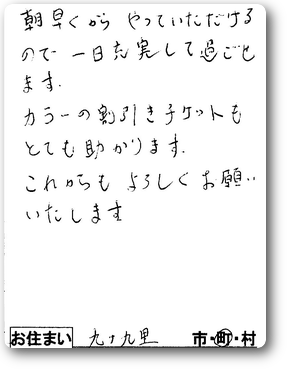 朝早くから やっていただける
ので 一日充実して過ごせ
ます.
カラーの割引きチケットも
とても助かります.
これからも よろしくお願い
いたします
お住まい 九十九里 市・町・村